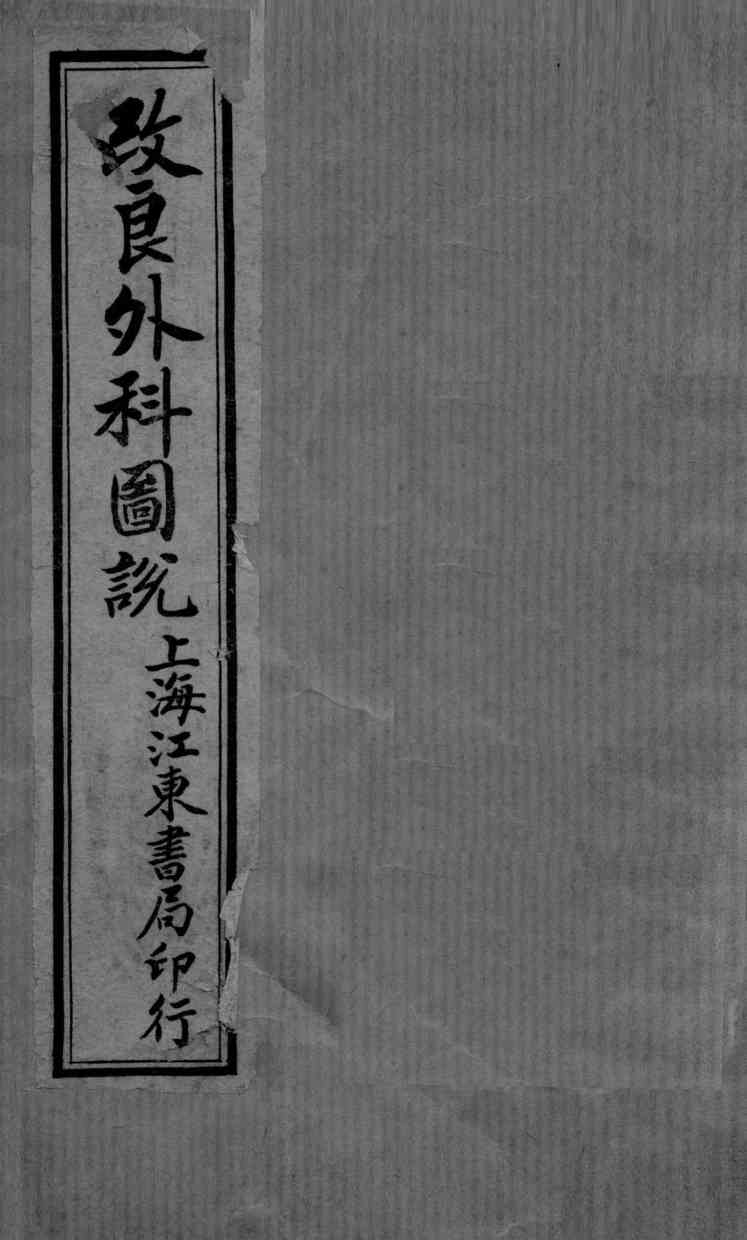 改良外科圖說
上海江東書局印行